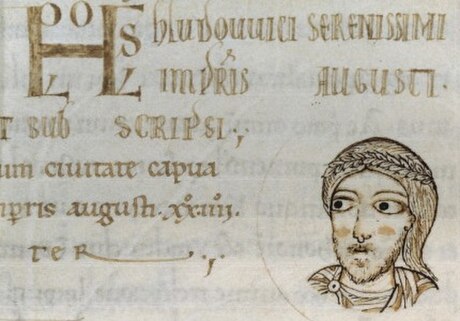 hludouuici SERENISSIMI
IMPRIS AUGUSTI.
T SUB SCRIPSI;
um ciuitate capua
mpris augusti. xxiiii.
TER ;